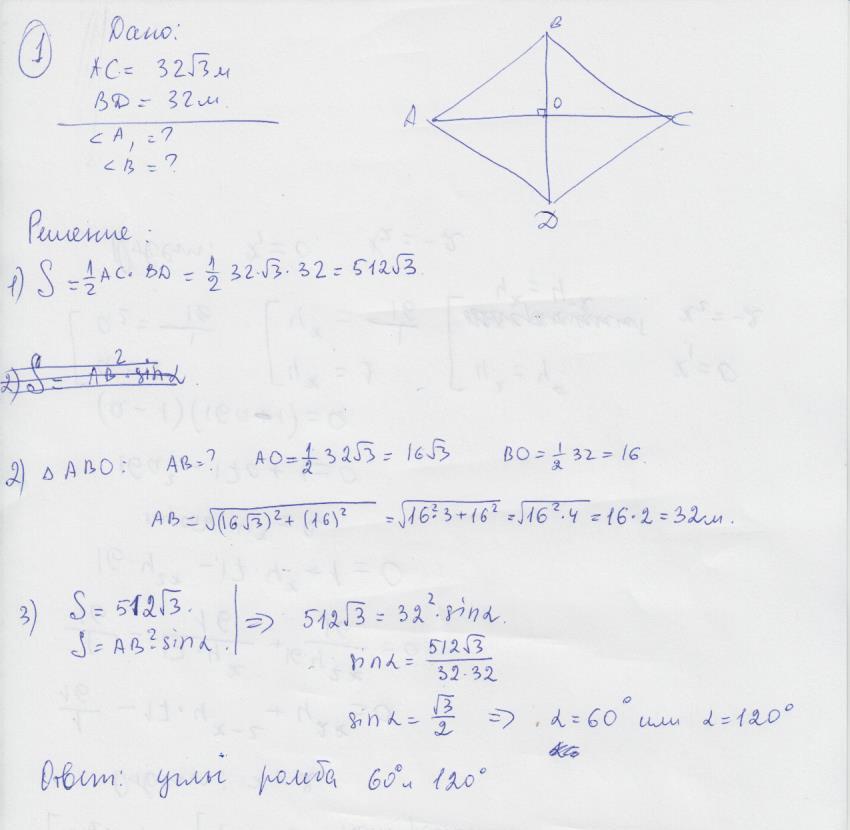 1
Дано:
AC = 32√3 м
BD = 32 м.
< A, = ?
< B = ?
B
A
O
C
D
Решение:
1) S = 1/2 AC · BD = 1/2 32·√3 · 32 = 512√3
2) S = AB² · sinα.
2) △ ABO: AB = ? AO = 1/2 32√3 = 16√3 BO = 1/2 32 = 16.
AB = √((16√3)² + (16)²) = √(16²·3 + 16²) = √(16²·4) = 16·2 = 32 м.
3) S = 512√3.
S = AB²·sinα. | ⇒ 512√3 = 32²·sinα.
sinα = 512√3/(32·32)
sinα = √3/2 ⇒ α = 60° или α = 120°
Ответ: углы ромба 60° и 120°